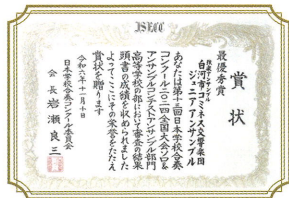 JSECC
賞状
最優秀賞
弦楽アンサンブル
白河市コミネス交響楽団
ジュニアアンサンブル
あなたは第十三回日本学校合奏
コンクール二〇二四全国大会ソロ&
アンサンブルコンテストアンサンブル部門
高等学校の部において審査の結果
頭書の成績を収められました
よってここにその栄誉をたたえ
賞状を贈ります
令和六年十一月十日
日本学校合奏コンクール委員会
会長 岩瀬良三